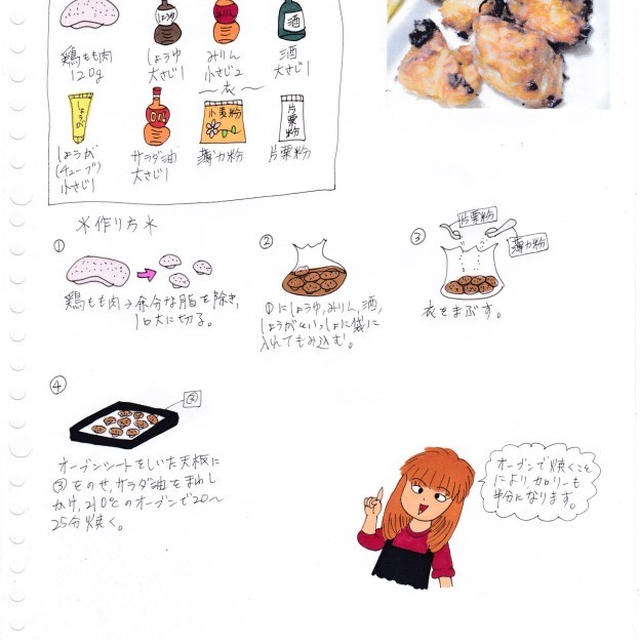 しょうゆ
みりん
酒
鶏もも肉
120g
しょうゆ
大さじ1
みりん
小さじ2
酒
大さじ1
〜衣〜
しょうが
小麦粉
片栗粉
しょうが
(チューブ)
小さじ1
サラダ油
大さじ1
薄力粉
片栗粉
＊作り方＊
①
鶏もも肉→余分な脂を除き、
一口大に切る。
②
①にしょうゆ,みりん,酒,
しょうがをいっしょに袋に
入れてもみ込む。
③
片栗粉
薄力粉
衣をまぶす。
④
③
オーブンシートをしいた天板に
③をのせ,サラダ油をまわし
かけ,210℃のオーブンで20〜
25分焼く。
オーブンで焼くこと
により,カロリーも
半分になります。